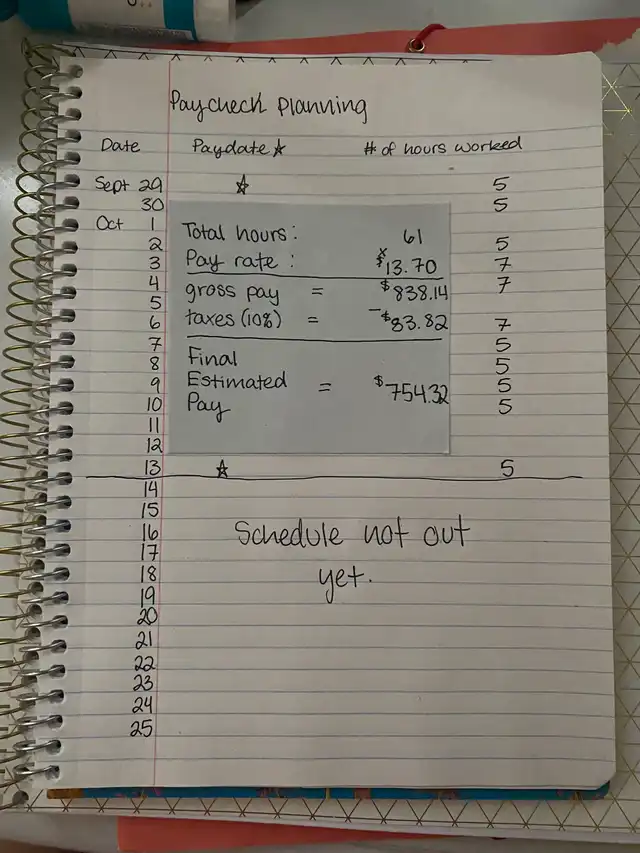 Paycheck Planning
Date Paydate☆ # of hours worked
Sept 29 ☆ 5
30 5
Oct 1
2 5
3 7
4 7
5
6 7
7 5
8 5
9 5
10 5
11
12
13 ☆ 5
14
15
16
17
18
19
20
21
22
23
24
25
Total hours: 61
Pay rate: x $13.70
gross pay = $838.14
taxes (10%) = -$83.82
Final
Estimated = $754.32
Pay
Schedule not out
yet.